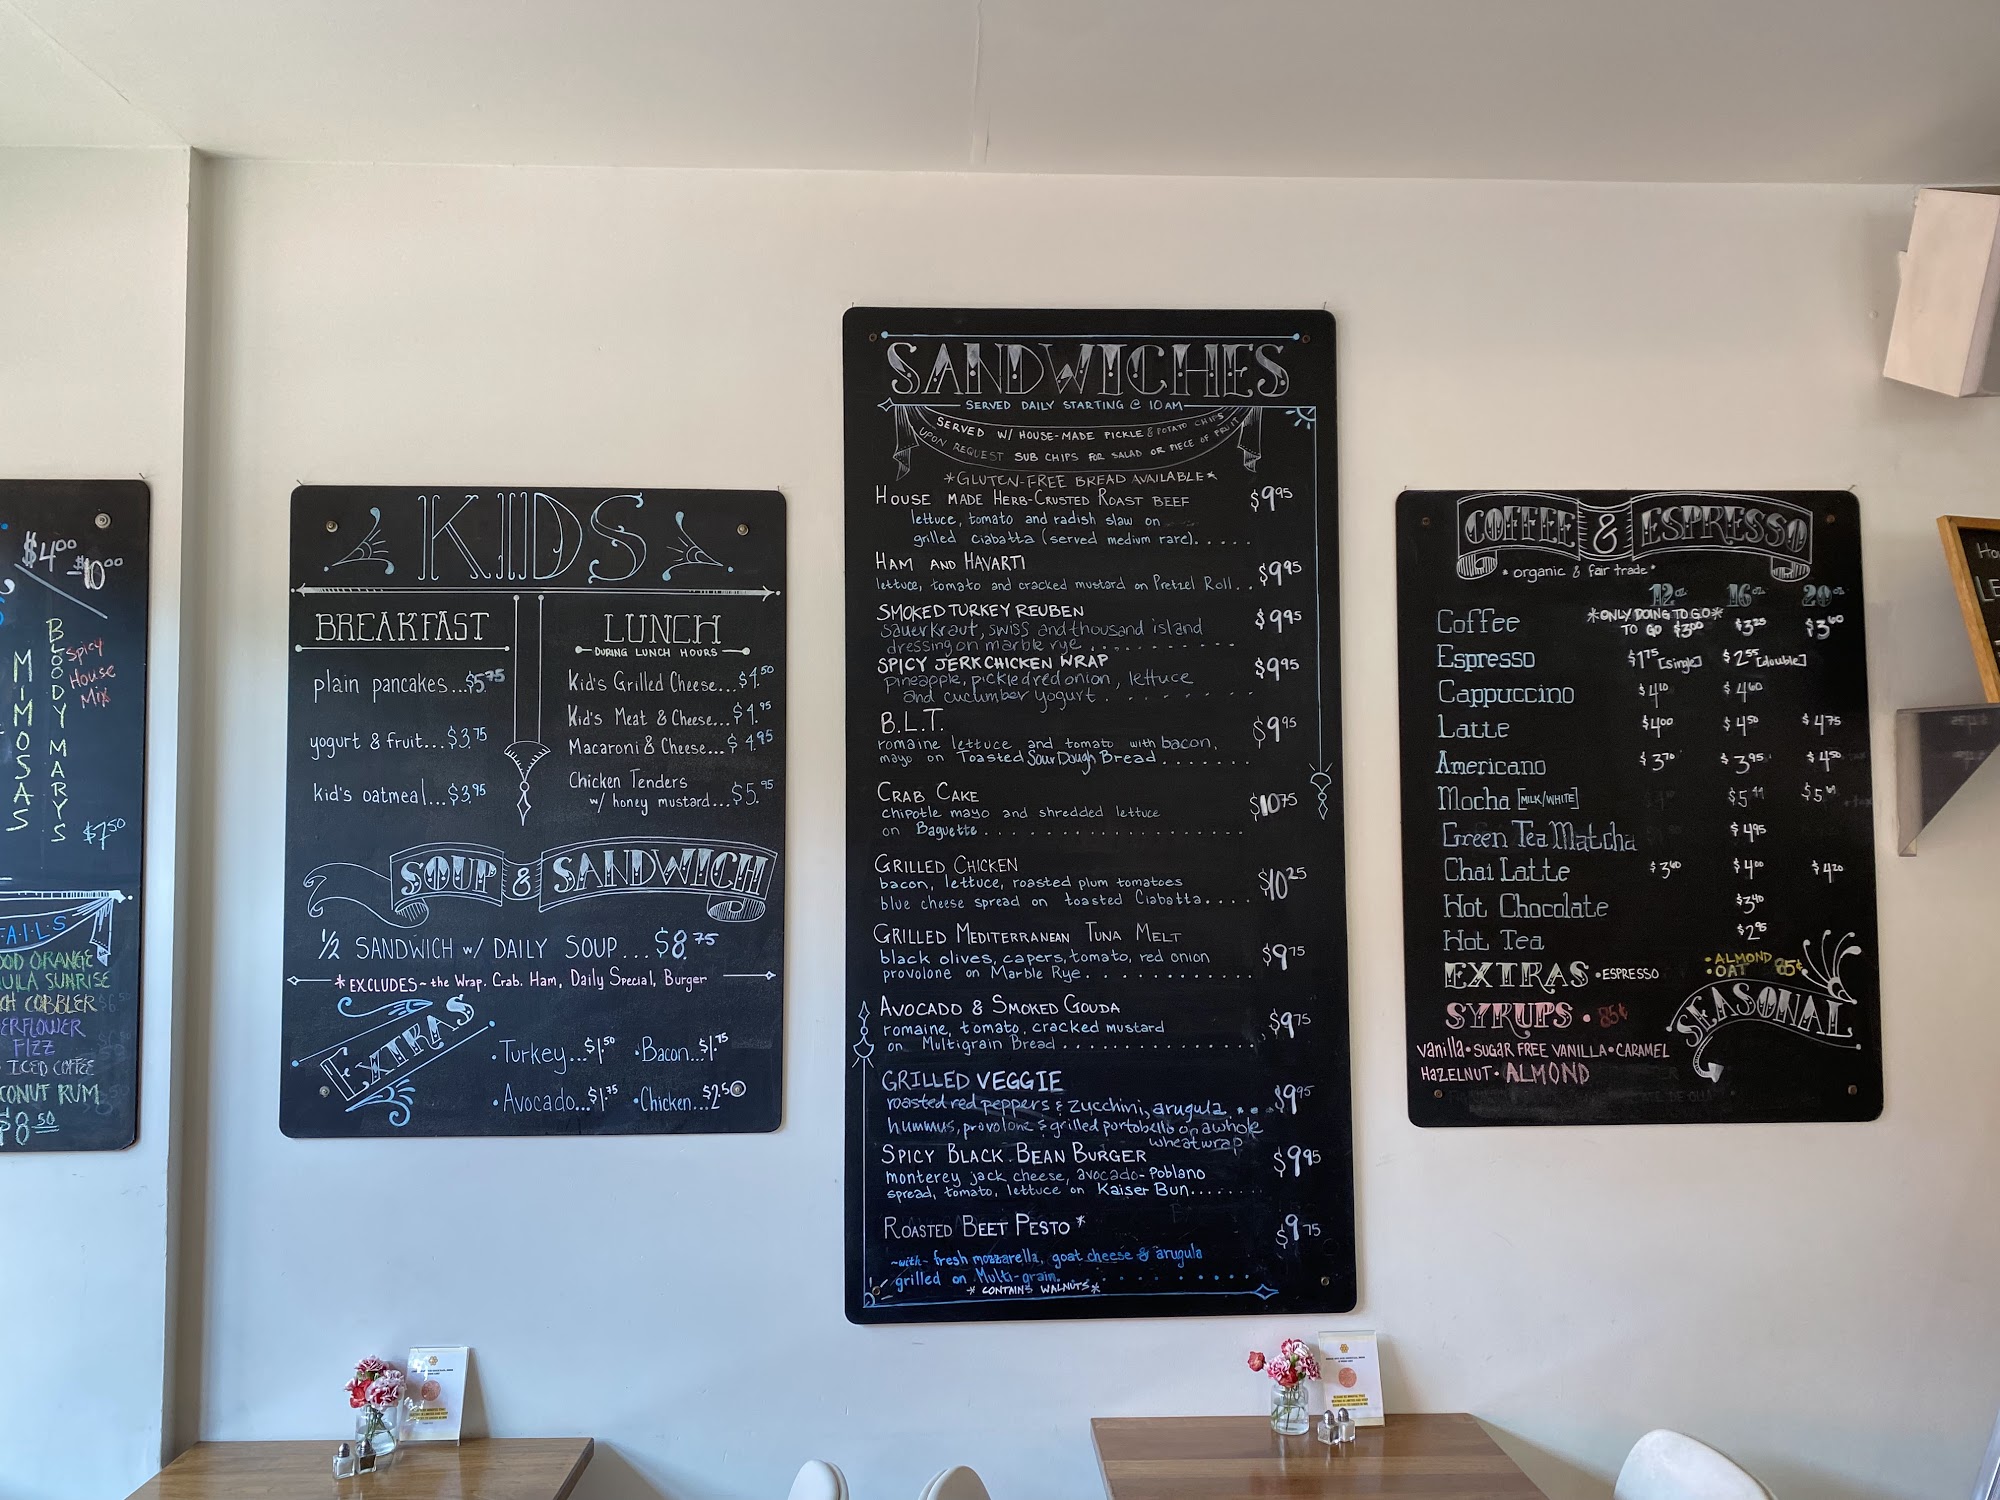 $4.00
$10.00
MIMOSAS
BLOODY MARYS
Spicy
House
Mix
$7.50
ORANGE
SUNRISE
COBBLER
FIZZ
ICED COFFEE
RUM
$8.50
KIDS
BREAKFAST
plain pancakes...$5.75
yogurt & fruit...$3.75
kid's oatmeal...$3.95
LUNCH
DURING LUNCH HOURS
Kid's Grilled Cheese...$4.50
Kid's Meat & Cheese...$4.95
Macaroni & Cheese...$4.95
Chicken Tenders
w/ honey mustard...$5.95
SOUP & SANDWICH
1/2 SANDWICH w/ DAILY SOUP...$8.75
*EXCLUDES~ the Wrap. Crab. Ham, Daily Special, Burger
EXTRAS
•Turkey...$1.50 •Bacon...$1.75
•Avocado...$1.75 •Chicken...$2.50
SANDWICHES
SERVED DAILY STARTING @ 10AM
SERVED W/ HOUSE-MADE PICKLE & POTATO CHIPS
UPON REQUEST SUB CHIPS FOR SALAD OR PIECE OF FRUIT
*GLUTEN-FREE BREAD AVAILABLE*
HOUSE MADE HERB-CRUSTED ROAST BEEF $9.95
lettuce, tomato and radish slaw on
grilled ciabatta (served medium rare).....
HAM AND HAVARTI
lettuce, tomato and cracked mustard on Pretzel Roll.. $9.95
SMOKED TURKEY REUBEN $9.95
sauerkraut, swiss and thousand island
dressing on marble rye..........
SPICY JERK CHICKEN WRAP $9.95
pineapple, pickled red onion, lettuce
and cucumber yogurt........
B.L.T. $9.95
romaine lettuce and tomato with bacon,
mayo on Toasted Sour Dough Bread.......
CRAB CAKE $10.75
chipotle mayo and shredded lettuce
on Baguette...................
GRILLED CHICKEN
bacon, lettuce, roasted plum tomatoes $10.25
blue cheese spread on toasted Ciabatta....
GRILLED MEDITERRANEAN TUNA MELT
black olives, capers, tomato, red onion $9.75
provolone on Marble Rye.............
AVOCADO & SMOKED GOUDA
romaine, tomato, cracked mustard $9.75
on Multigrain Bread...............
GRILLED VEGGIE $9.95
roasted red peppers & zucchini, arugula...
hummus, provolone & grilled portobello on a whole
wheat wrap
SPICY BLACK BEAN BURGER $9.95
monterey jack cheese, avocado-Poblano
spread, tomato, lettuce on Kaiser Bun........
ROASTED BEET PESTO* $9.75
~with~ fresh mozzarella, goat cheese & arugula
grilled on Multi-grain..........
*CONTAINS WALNUTS*
COFFEE & ESPRESSO
*organic & fair trade*
12oz 16oz 20oz
*ONLY DOING TO GO*
Coffee TO GO $3.00 $3.25 $3.60
Espresso $1.75 [single] $2.55 [double]
Cappuccino $4.10 $4.60
Latte $4.00 $4.50 $4.75
Americano $3.70 $3.95 $4.50
Mocha [MILK/WHITE]
Green Tea Matcha $4.95
Chai Latte $3.60 $4.00 $4.20
Hot Chocolate $3.40
Hot Tea $2.95
EXTRAS •ESPRESSO •ALMOND
•OAT 85¢
SYRUPS • 85¢
SEASONAL
vanilla • SUGAR FREE VANILLA • CARAMEL
HAZELNUT • ALMOND